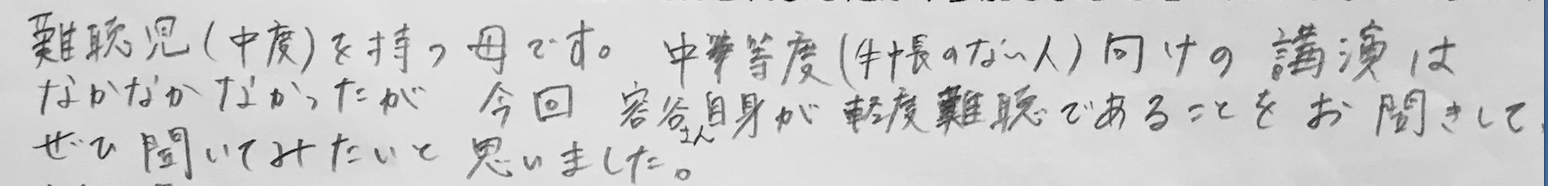 難聴児(中度)を持つ母です。 中等度(手帳のない人)向けの講演は
なかなかなかったが 今回 容谷さん自身が軽度難聴であることをお聞きして
ぜひ聞いてみたいと思いました。